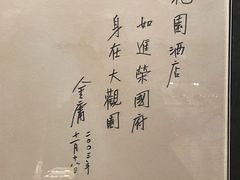 花園酒店
如進榮國府
身在大觀園
金庸
二〇〇三年
十一月十